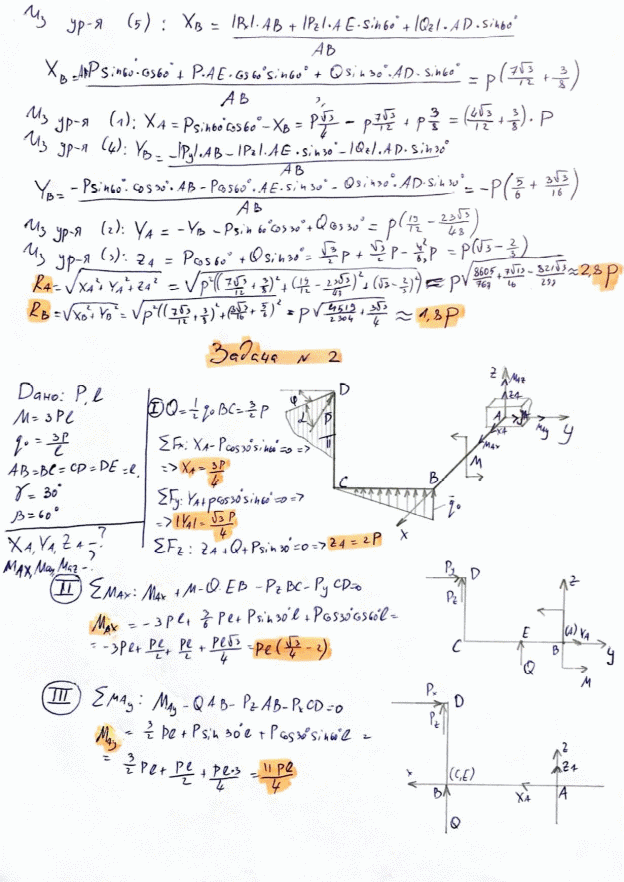 Из ур-я (5): X_B = |P_y|·AB + |P_z|·AE·sin60° + |Q_z|·AD·sin60°
AB
X_B = Psin60°·cos60° + P·AE·cos60°sin60° + Qsin30°·AD·sin60° = P(7√3/12 + 3/8)
AB
Из ур-я (1): X_A = Psin60°cos60° - X_B = P√3/4 - P7√3/12 + P3/8 = (4√3/12 + 3/8)·P
Из ур-я (4): Y_B = -|P_y|·AB - |P_z|·AE·sin30° - |Q_z|·AD·sin30°
AB
Y_B = -Psin60°·cos30°·AB - Pcos60°·AE·sin30° - Qsin30°·AD·sin30° = -P(5/6 + 3√3/16)
AB
Из ур-я (2): Y_A = -Y_B - Psin60°cos30° + Qcos30° = P(
- 23√3/48)
Из ур-я (3): Z_A = Pcos60° + Qsin30° =
= P(√3 - 2/3)
R_A = √X_A² + Y_A² + Z_A² =
≈ 2,8P
R_B = √X_B² + Y_B² =
≈ 1,8P
Задача №2
Дано: P, l
M = 3Pl
q₀ = 3P/l
AB=BC=CD=DE=l,
γ = 30°
β = 60°
X_A, Y_A, Z_A - ?
M_AX, M_Ay, M_AZ - ?
I Q = 1/2 q₀ BC = 3/2 P
ΣF_x: X_A - Pcos30°sin60° = 0 =>
=> X_A = 3P/4
ΣF_y: Y_A + Pcos30°sin60° = 0 =>
=> |Y_A| = √3P/4
ΣF_z: Z_A + Q + Psin30° = 0 => Z_A = 2P
φ D
α P
C B
q̄₀
x
Z M_AZ
Z_A
A
X_A M_Ay y
M_AX
M
II ΣM_AX: M_AX + M - Q·EB - P_Z BC - P_y CD = 0
M_AX = -3Pl + 3/6 Pl + Psin30°l + Pcos30°cos60°l =
= -3Pl + Pl/2 + Pl/2 + Pl√3/4 = Pl(√3/4 - 2)
P_y D
P_z
Z
C E (A) Y_A
B y
Q M
III ΣM_Ay: M_Ay - Q AB - P_Z AB - P_x CD = 0
M_Ay = 3/2 Pl + Psin30°l + Pcos30°sin60°l =
= 3/2 Pl + Pl/2 + Pl·3/4 = 11Pl/4
P_x D
P_z
Z
Z_A
x (C,E)
B X_A A
Q